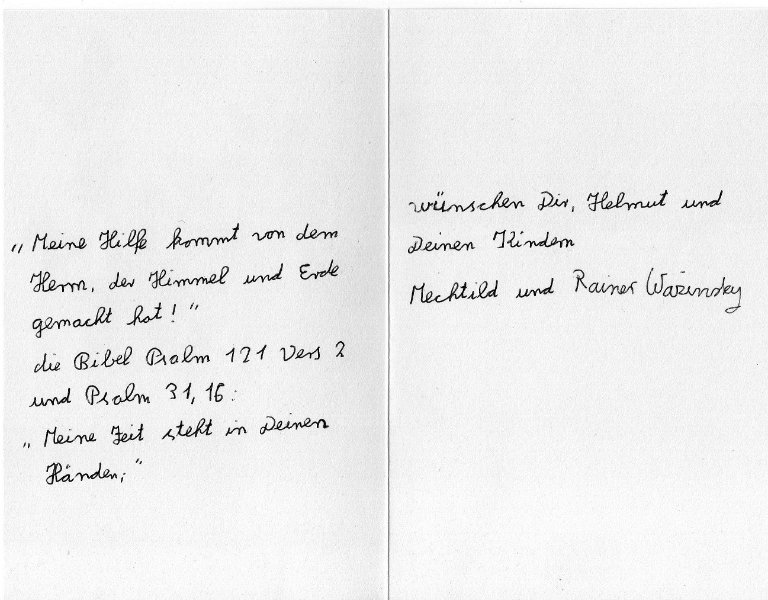 „Meine Hilfe kommt von dem
Herrn, der Himmel und Erde
gemacht hat!"
die Bibel Psalm 121 Vers 2
und Psalm 31,16:
„Meine Zeit steht in Deinen
Händen;"
wünschen Dir, Helmut und
Deinen Kindern
Mechtild und Rainer Wazinsky